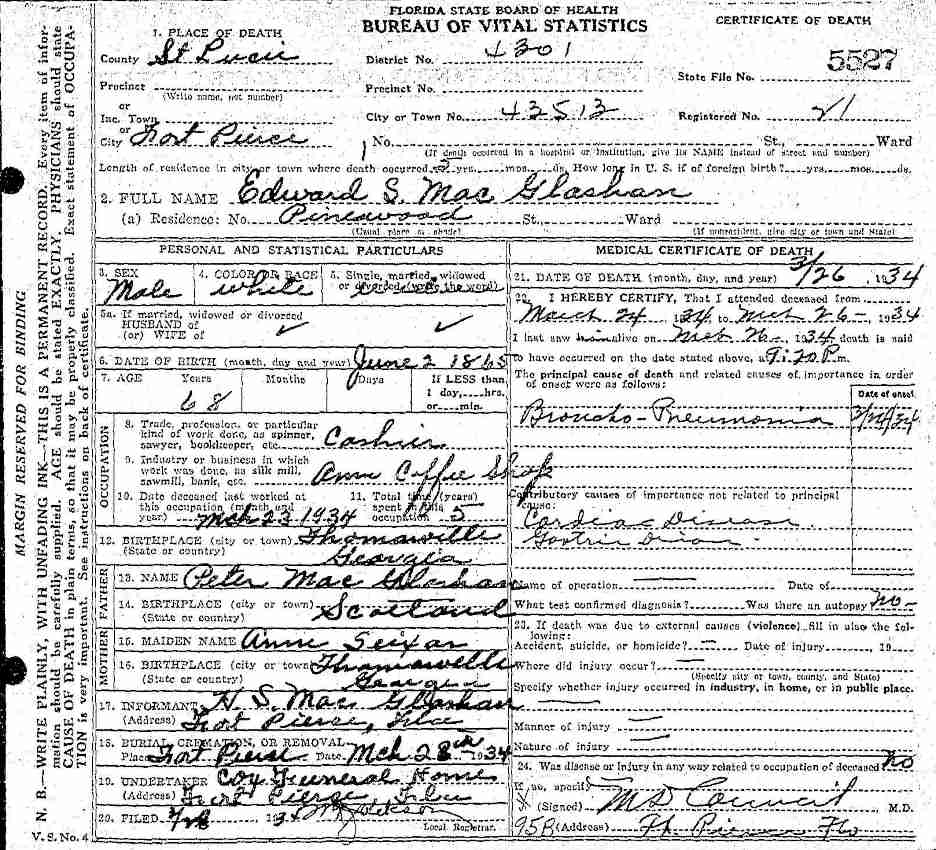 FLORIDA STATE BOARD OF HEALTH
BUREAU OF VITAL STATISTICS
CERTIFICATE OF DEATH
1. PLACE OF DEATH
County St Lucie
District No. 4301
State File No. 5527
Precinct
(Write name, not number)
Precinct No.
or
Inc. Town
City or Town No. 43513
Registered No. 21
or
City Fort Pierce
No. St., Ward
(If death occurred in a hospital or institution, give its NAME instead of street and number)
Length of residence in city or town where death occurred yrs. mos. ds. How long in U. S. if of foreign birth? yrs. mos. ds.
2. FULL NAME Edward S. Mac Glashan
(a) Residence: No. Pinewood St. Ward
(Usual place of abode)
(If nonresident, give city or town and State)
PERSONAL AND STATISTICAL PARTICULARS
3. SEX
Male
4. COLOR OR RACE
White
5. Single, married, widowed
or divorced (write the word)
5a. If married, widowed or divorced
HUSBAND of
(or) WIFE of
6. DATE OF BIRTH (month, day and year) June 2 1865
7. AGE Years Months Days If LESS than
1 day, hrs.
or min.
68
OCCUPATION
8. Trade, profession, or particular
kind of work done, as spinner,
sawyer, bookkeeper, etc. Cashier
9. Industry or business in which
work was done, as silk mill,
sawmill, bank, etc. Ann Coffee Shop
10. Date deceased last worked at
this occupation (month and
year) Mch 23 1934
11. Total time (years)
spent in this
occupation 5
12. BIRTHPLACE (city or town) Thomasville
(State or country) Georgia
FATHER
13. NAME Peter Mac Glashan
14. BIRTHPLACE (city or town) Scotland
(State or country)
MOTHER
15. MAIDEN NAME Anne Seixas
16. BIRTHPLACE (city or town) Thomasville
(State or country) Georgia
17. INFORMANT H. S. Mac Glashan
(Address) Fort Pierce, Fla
18. BURIAL, CREMATION, OR REMOVAL
Place Fort Pierce Date Mch 28th 1934
19. UNDERTAKER Cox Funeral Home
(Address) Fort Pierce Fla
20. FILED
Local Registrar.
V. S. No. 4
MEDICAL CERTIFICATE OF DEATH
21. DATE OF DEATH (month, day, and year) 3/26 1934
22. I HEREBY CERTIFY, That I attended deceased from
March 24 1934 to Mch 26- 1934
I last saw him alive on Mch 26- 1934 death is said
to have occurred on the date stated above, at P.m.
The principal cause of death and related causes of importance in order
of onset were as follows:
Date of onset
Broncho-Pneumonia 3/24/34
Contributory causes of importance not related to principal
cause:
Cardiac Disease
Name of operation Date of
What test confirmed diagnosis? Was there an autopsy no-
23. If death was due to external causes (violence) fill in also the fol-
lowing:
Accident, suicide, or homicide? Date of injury 19
Where did injury occur?
(Specify city or town, county, and State)
Specify whether injury occurred in industry, in home, or in public place.
Manner of injury
Nature of injury
24. Was disease or injury in any way related to occupation of deceased no
If so, specify
(Signed) MD Council M.D.
95B (Address) Ft Pierce Fla
MARGIN RESERVED FOR BINDING
N. B.—WRITE PLAINLY, WITH UNFADING INK—THIS IS A PERMANENT RECORD. Every item of infor-
mation should be carefully supplied. AGE should be stated EXACTLY. PHYSICIANS should state
CAUSE OF DEATH in plain terms, so that it may be properly classified. Exact statement of OCCUPA-
TION is very important. See instructions on back of certificate.